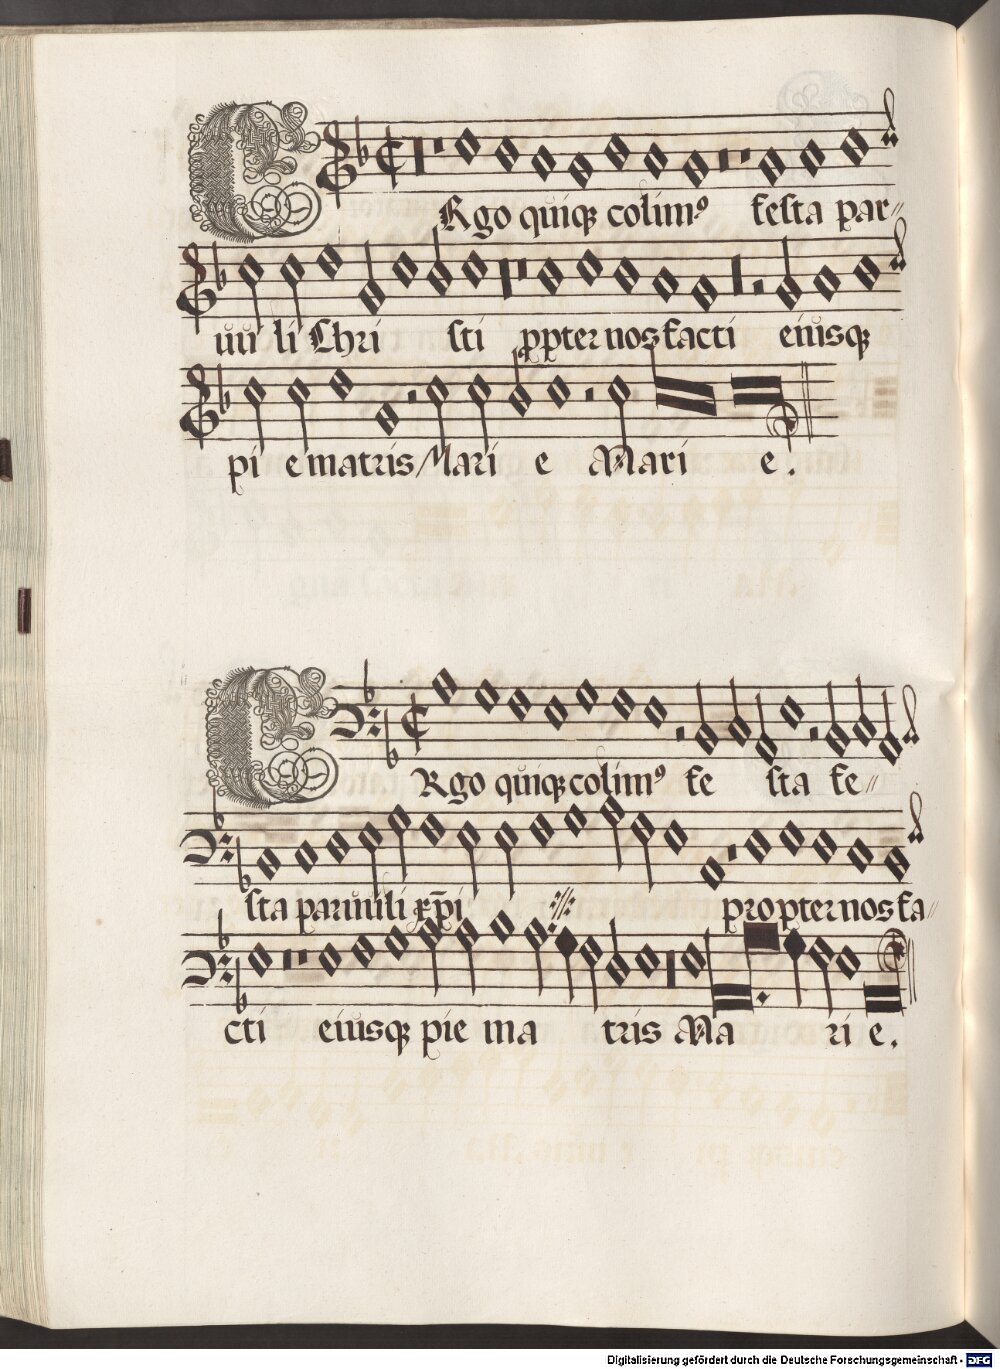 ERgo quiq colim⁹ festa par〃
uu li Chri sti ppter nos facti eiusq
pi e matris Mari e Mari e.
ERgo quiq colim⁹ fe sta fe〃
sta paruuli xp̄i ://: propter nos fa〃
cti eiusq pie ma tris Ma ri e.
Digitalisierung gefördert durch die Deutsche Forschungsgemeinschaft - DFG